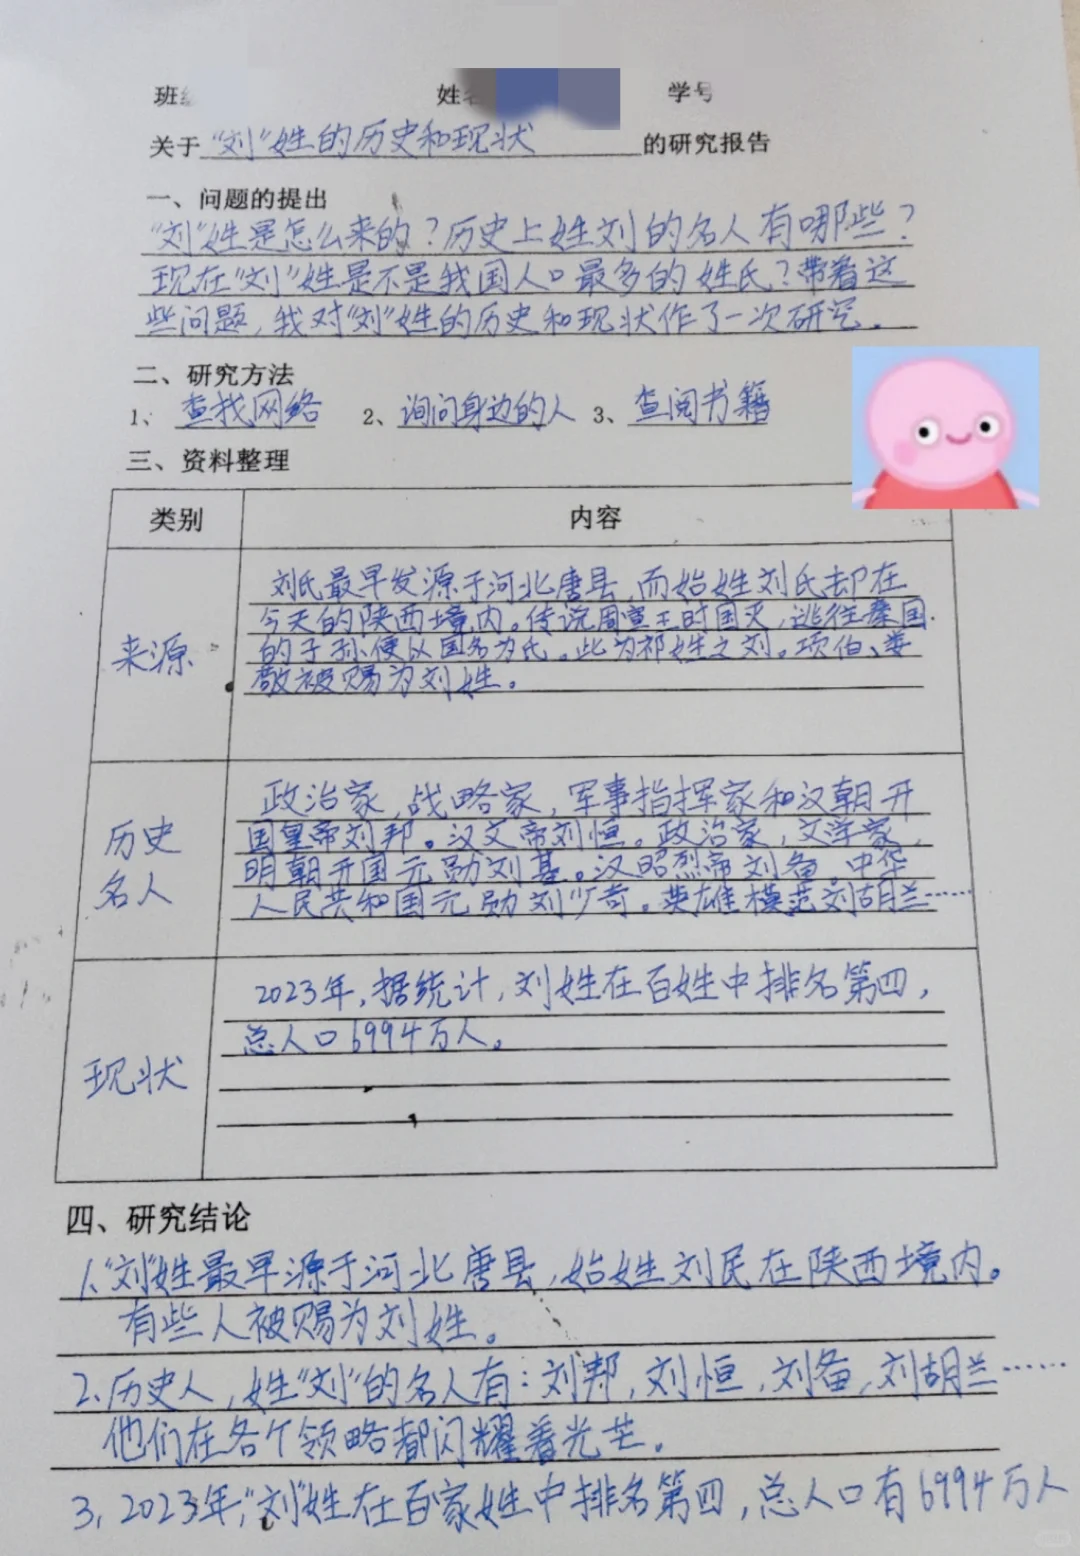 班
姓名
学号
关于"刘"姓的历史和现状的研究报告
一、问题的提出
"刘"姓是怎么来的?历史上姓刘的名人有哪些?
现在"刘"姓是不是我国人口最多的姓氏?带着这
些问题,我对"刘"姓的历史和现状作了一次研究。
二、研究方法
1、查找网络 2、询问身边的人 3、查阅书籍
三、资料整理
类别 内容
来源
刘氏最早发源于河北唐县,而始姓刘氏却在
今天的陕西境内。传说周宣王时国灭,逃往秦国
的子孙便以国名为氏。此为祁姓之刘。项伯、娄
敬被赐为刘姓。
历史
名人
政治家,战略家,军事指挥家和汉朝开
国皇帝刘邦。汉文帝刘恒。政治家,文学家,
明朝开国元勋刘基。汉昭烈帝刘备。中华
人民共和国元勋刘少奇。英雄模范刘胡兰……
现状
2023年,据统计,刘姓在百姓中排名第四,
总人口6994万人。
四、研究结论
1."刘"姓最早源于河北唐县,始姓刘民在陕西境内。
有些人被赐为刘姓。
2.历史人,姓"刘"的名人有:刘邦,刘恒,刘备,刘胡兰……
他们在各个领略都闪耀着光芒。
3,2023年,"刘"姓在百家姓中排名第四,总人口有6994万人